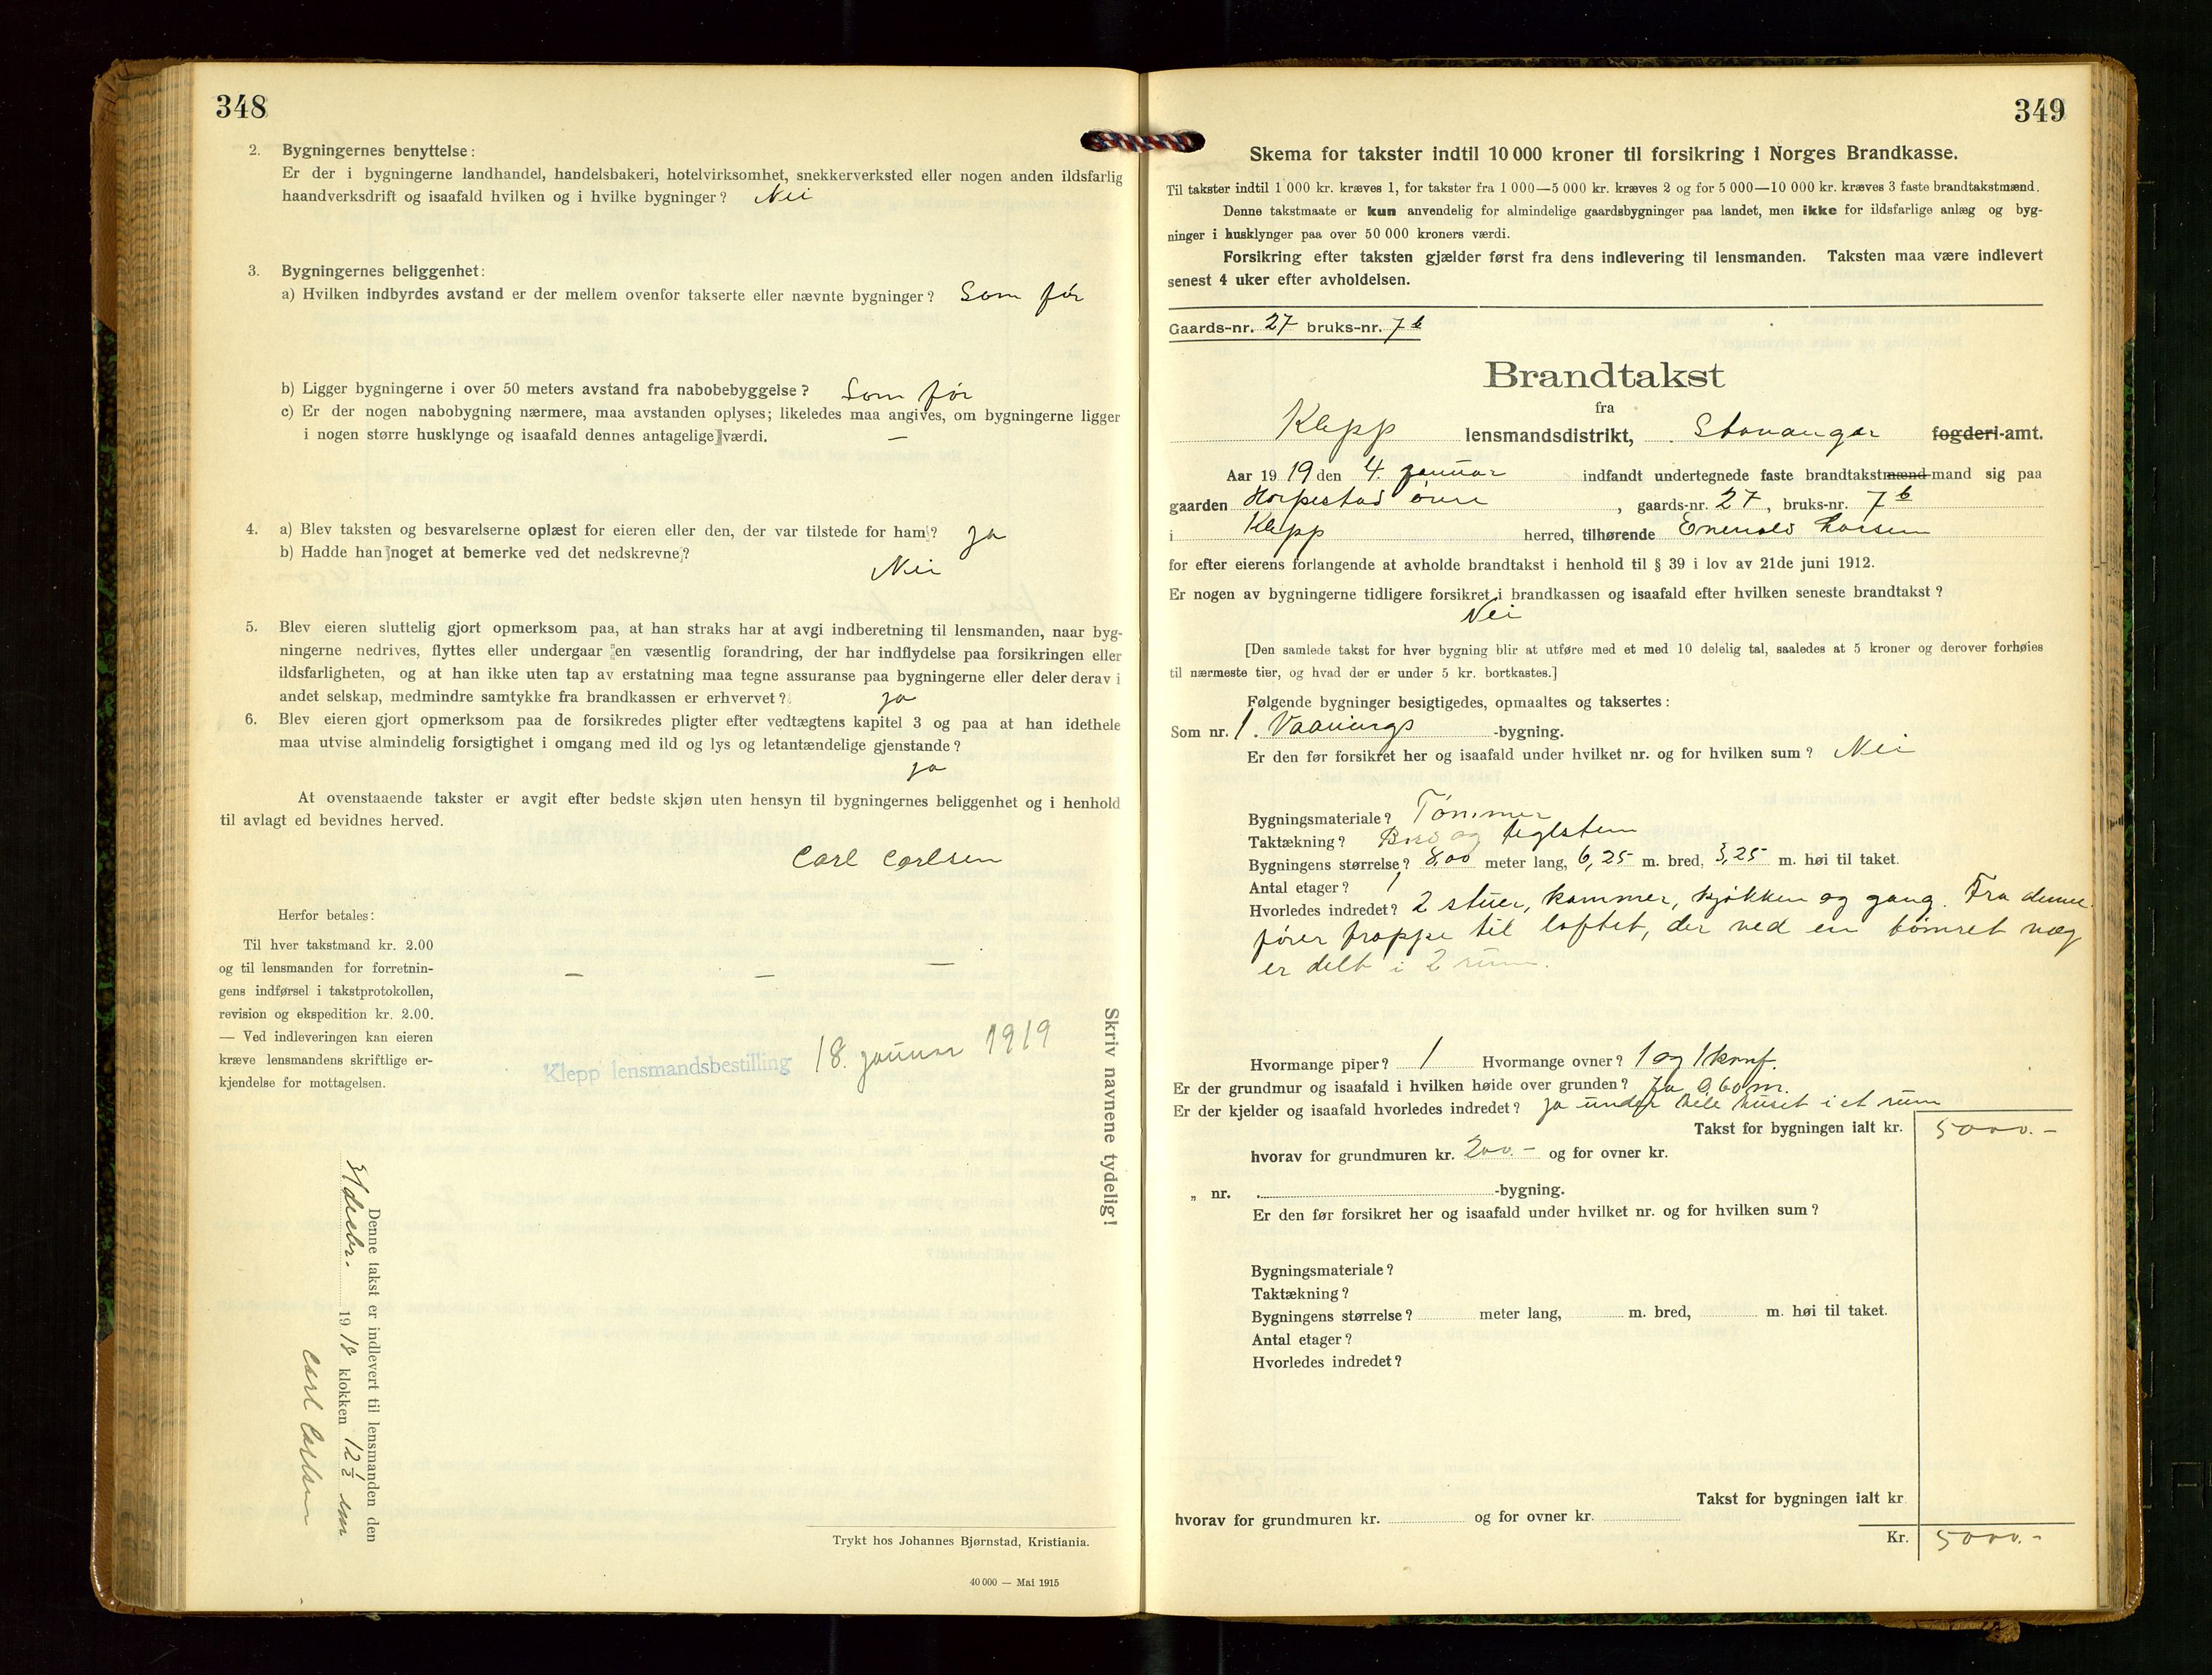 348
2. Bygningernes benyttelse:
Er der i bygningerne landhandel, handelsbakeri, hotelvirksomhet, snekkerverksted eller nogen anden ildsfarlig
haandverksdrift og isaafald hvilken og i hvilke bygninger? Nei
3. Bygningernes beliggenhet:
a) Hvilken indbyrdes avstand er der mellem ovenfor takserte eller nævnte bygninger? Som før
b) Ligger bygningerne i over 50 meters avstand fra nabobebyggelse? Som før
c) Er der nogen nabobygning nærmere, maa avstanden oplyses; likeledes maa angives, om bygningerne ligger
i nogen større husklynge og isaafald dennes antagelige værdi. —
4. a) Blev taksten og besvarelserne oplæst for eieren eller den, der var tilstede for ham? Ja
b) Hadde han noget at bemerke ved det nedskrevne?
Nei
5. Blev eieren sluttelig gjort opmerksom paa, at han straks har at avgi indberetning til lensmanden, naar byg-
ningerne nedrives, flyttes eller undergaar en væsentlig forandring, der har indflydelse paa forsikringen eller
ildsfarligheten, og at han ikke uten tap av erstatning maa tegne assuranse paa bygningerne eller deler derav i
andet selskap, medmindre samtykke fra brandkassen er erhvervet? ja
6. Blev eieren gjort opmerksom paa de forsikredes pligter efter vedtægtens kapitel 3 og paa at han idethele
maa utvise almindelig forsigtighet i omgang med ild og lys og letantændelige gjenstande?
ja
At ovenstaaende takster er avgit efter bedste skjøn uten hensyn til bygningernes beliggenhet og i henhold
til avlagt ed bevidnes herved.
Carl Carlsen
Herfor betales:
Til hver takstmand kr. 2.00
og til lensmanden for forretnin-
gens indførsel i takstprotokollen,
revision og ekspedition kr. 2.00.
— Ved indleveringen kan eieren
kræve lensmandens skriftlige er-
kjendelse for mottagelsen.
— — —
Klepp lensmandsbestilling 18. januar 1919
Skriv navnene tydelig!
Denne takst er indlevert til lensmanden den
decbr. 1918 klokken 12 1/2 em
Carl Carlsen
Trykt hos Johannes Bjørnstad, Kristiania.
40 000 — Mai 1915
349
Skema for takster indtil 10 000 kroner til forsikring i Norges Brandkasse.
Til takster indtil 1 000 kr. kræves 1, for takster fra 1 000—5 000 kr. kræves 2 og for 5 000—10 000 kr. kræves 3 faste brandtakstmænd.
Denne takstmaate er kun anvendelig for almindelige gaardsbygninger paa landet, men ikke for ildsfarlige anlæg og byg-
ninger i husklynger paa over 50 000 kroners værdi.
Forsikring efter taksten gjælder først fra dens indlevering til lensmanden. Taksten maa være indlevert
senest 4 uker efter avholdelsen.
Gaards-nr. 27 bruks-nr. 7 b
Brandtakst
fra
Klepp lensmandsdistrikt, Stavanger fogderi-amt.
Aar 1919 den 4. januar indfandt undertegnede faste brandtakstmænd mand sig paa
gaarden Horpestad øvre, gaards-nr. 27, bruks-nr. 7 b
i Klepp herred, tilhørende Enevald Larsen
for efter eierens forlangende at avholde brandtakst i henhold til § 39 i lov av 21de juni 1912.
Er nogen av bygningerne tidligere forsikret i brandkassen og isaafald efter hvilken seneste brandtakst?
Nei
[Den samlede takst for hver bygning blir at utføre med et med 10 delelig tal, saaledes at 5 kroner og derover forhøies
til nærmeste tier, og hvad der er under 5 kr. bortkastes.]
Følgende bygninger besigtigedes, opmaaltes og taksertes:
Som nr. 1. Vaanings -bygning.
Er den før forsikret her og isaafald under hvilket nr. og for hvilken sum? Nei
Bygningsmateriale? Tømmer
Taktækning? Bord og teglsten
Bygningens størrelse? 8,00 meter lang, 6,25 m. bred, 3,25 m. høi til taket.
Antal etager? 1
Hvorledes indredet? 2 stuer, kammer, kjøkken og gang. Fra denne
fører trappe til loftet, der ved en tømret væg
er delt i 2 rum.
Hvormange piper? 1 Hvormange ovner? 1 og 1 komf.
Er der grundmur og isaafald i hvilken høide over grunden? Ja 0,60 m.
Er der kjelder og isaafald hvorledes indredet? Ja under hele huset i et rum
Takst for bygningen ialt kr. 5000.-
hvorav for grundmuren kr. 200.- og for ovner kr.
„ nr. . -bygning.
Er den før forsikret her og isaafald under hvilket nr. og for hvilken sum?
Bygningsmateriale?
Taktækning?
Bygningens størrelse? meter lang, m. bred, m. høi til taket.
Antal etager?
Hvorledes indredet?
Takst for bygningen ialt kr
hvorav for grundmuren kr. og for ovner kr.
Kr. 5000.-